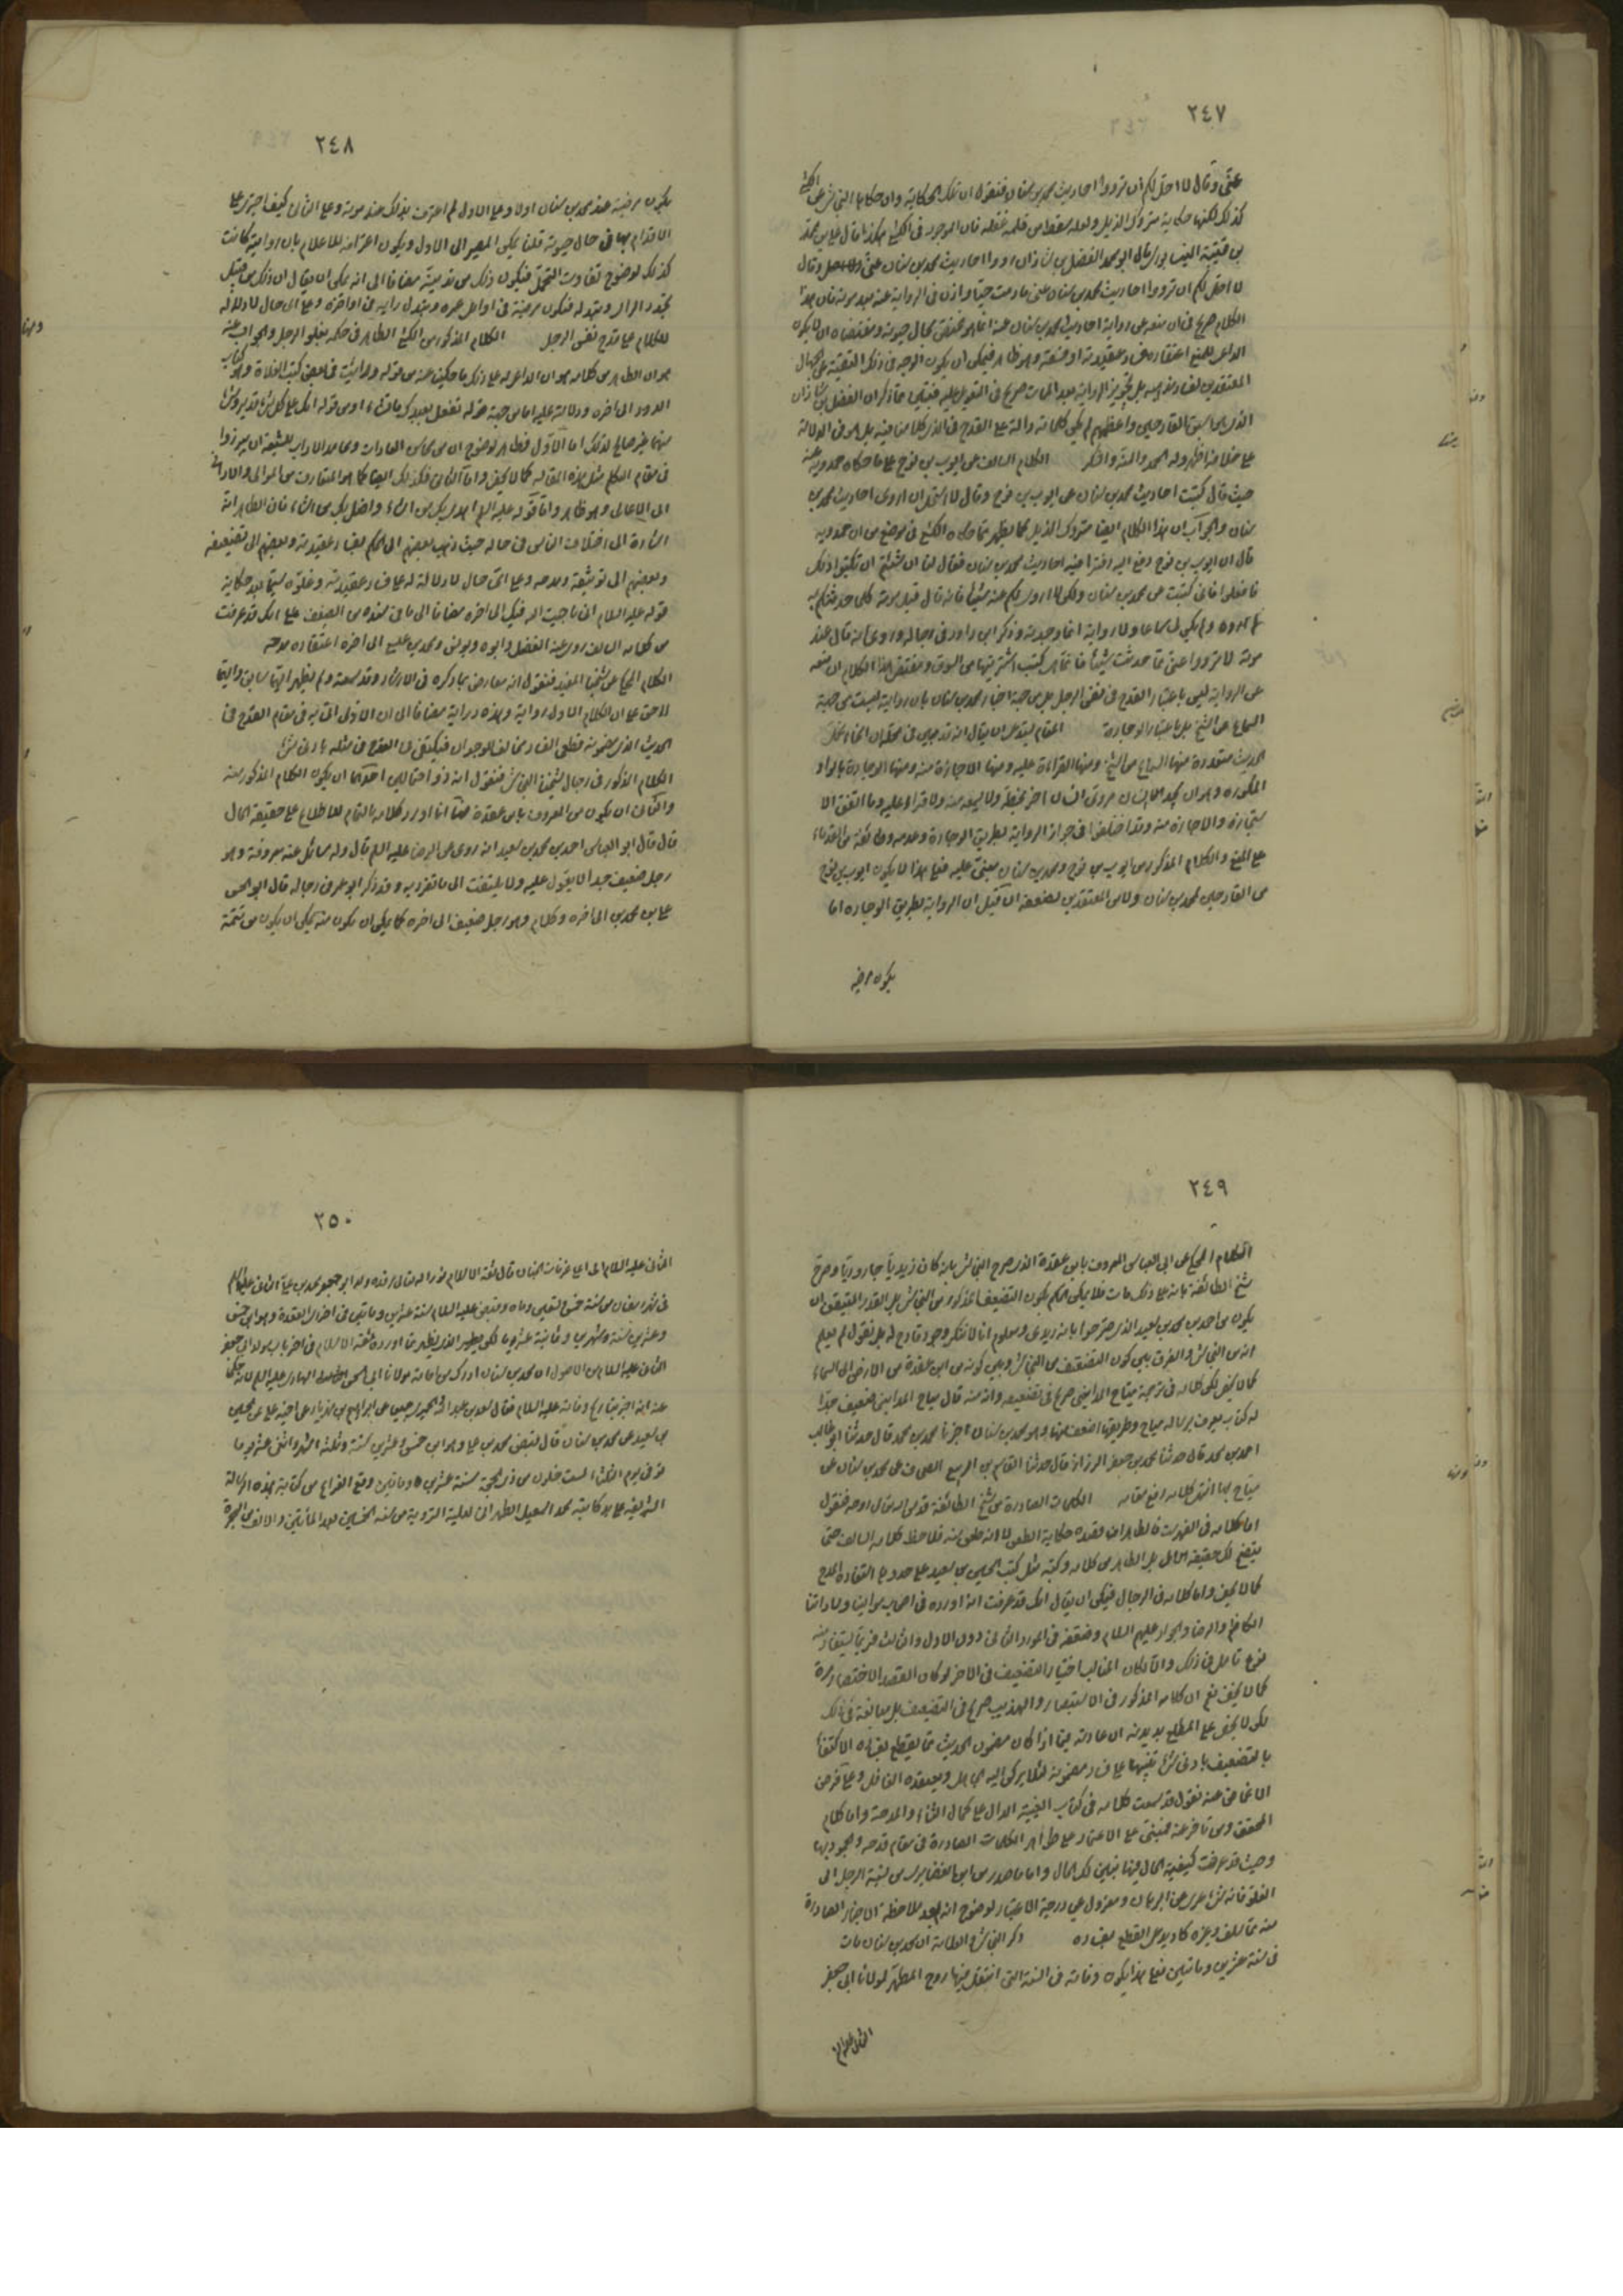 ٢٤٧
عنّى وقال لا احلّ لكم ان ترووا احاديث محمد بن سنان فنقول ان تلك الحكاية وان حكاها النجاشي عن الكشي
كذلك لكنها حكاية متروك الذيل ولعله سقط من قلمه غفلة فان الموجود في الكشي هكذا قال علي بن محمد
بن قتيبة النيسابوري قال ابو محمد الفضل بن شاذان ردوا احاديث محمد بن سنان عنّى وقال
لا احلّ لكم ان ترووا احاديث محمد بن سنان عنّي ما دمت حيّا واذن في الرواية عنه بعد موته فان هذا
الكلام صريح في ان منعه عن رواية احاديث محمد بن سنان عنه انما هو مختصّ بحال حيوته ومقتضاه ان لا يكون
الداعي للمنع اعتقاده فساد عقيدته او ضعفه وهو ظاهر فيمكن ان يكون الوجه في ذلك التقية عن الجهال
المعتقدين لفساد مذهبه بل تجويز الرواية بعد الممات صريح في التعويل عليه فتبيّن ممّا ذكر ان الفضل بن شاذان
الذي هو اسبق القادحين واعظمهم لم يكن كلماته دالة على القدح في الذي كلامنا فيه بل هو في الدلالة
على خلافه اظهر وله الحمد والمنة والشكر الكلام السالف عن ايوب بن نوح على ما حكاه حمدويه عنه
حيث قال كتبت احاديث محمد بن سنان عن ايوب بن نوح وقال لا استحل ان اروى احاديث محمد بن
سنان والجواب ان هذا الكلام ايضا متروك الذيل كما يظهر ممّا حكاه الكشي في موضع من ان حمدويه
قال ان ايوب بن نوح دفع اليه دفترا فيه احاديث محمد بن سنان فقال لنا ان شئتم ان تكتبوا ذلك
فافعلوا فاني كتبت عن محمد بن سنان ولكن لا اروى لكم عنه شيئا فانه قال قبل موته كلما حدثتكم به
لم يكن لي سماعا ولا رواية انما وجدته وذكر ابن داود في رجاله وروى انه قال عند
موته لا ترووا عنّي ممّا حدثت شيئا فانما هي كتب اشتريتها من السوق ومقتضى هذا الكلام ان منعه
عن الرواية ليس باعتبار القدح في نفس الرجل بل من جهة اخبار محمد بن سنان بان رواية ليست من جهة
السماع عن الشيخ بل باعتبار الوجادة المقام يستدعي ان يقال انه قد تبين في محلّه ان انحاء تحمّل
الحديث متعددة منها السماع من الشيخ ومنها القراءة عليه ومنها الاجازة منه ومنها الوجادة بالواو
المكسورة وهو ان يجد الانسان مروى انسان اخر بخطه ولا سمعه منه ولا قرأه عليه وما اتفق الا
ستجازة والاجازة منه وقد اختلفوا في جواز الرواية بطريق الوجادة وعدمه وطائفة من القدماء
على المنع والكلام المذكور من ايوب بن نوح ومحمد بن سنان مبنى عليه فعلى هذا لا يكون ايوب بن نوح
من القادحين لمحمد بن سنان ولا من المعتقدين لضعفه ان قيل ان الرواية بطريق الوجادة اما
يكون مرضية
٢٤٨
يكون مرضية عند محمد بن سنان اولا وعلى الاول لم اعترف بذلك عند موته وعلى الثاني كيف اجترى على
الاقدام بها في حال حيوته قلنا يمكن المصير الى الاول ويكون اعترافه للاعلام بان روايته كانت
كذلك لوضوح تفاوت التحمل فيكون ذلك من تدينه مضافا الى انه يمكن ان يقال ان ذلك من قبيل
تجدد الراى وتبدله فتكون مرضية في اوائل عمره وتبدل رايه في اواخره وعلى اى حال لا دلالة
للكلام على قدح نفس الرجل الكلام المذكور من الكشي الظاهر في حكمه بغلو الرجل والجواب عنه
هو ان الظاهر من كلامه هو ان الداعي له على ذلك ما حكيت عنه من قوله ورايت في بعض كتب الغلاة وهو كتاب
الدور الى اخره ودلالته عليه اما من جهة قوله تفعل بعبدك ما تشاء او من قوله انك على كل شئ قدير وشئ
منهما غير صالح لذلك اما الاول فظاهر لوضوح ان من محاسن العادات ومحامد الاداب للشيعة ان يبرزوا
في مقام التكلم مثل هذه المقالة كما لا يخفى واما الثاني فكذلك ايضا كما هو المتعارف من الموالى والادانى
الى الاعالى وهو ظاهر واما قوله عليه السلام اهدى بك من اشاء واضل بك من اشاء فان الظاهر انه
اشارة الى اختلاف الناس في حاله حيث ذهب بعضهم الى الحكم بفساد عقيدته وبعضهم الى تضعيفه
وبعضهم الى توثيقه ومدحه وعلى اىّ حال لا دلالة له على فساد عقيدته وغلوّه سيّما بعد حكاية
قوله عليه السلام انى ناجيت الله فيك الى اخره مضافا الى ما في سنده من الضعف على انك قد عرفت
من كلامه السالف روى عنه الفضل وابوه ويونس ومحمد بن عيسى الى اخره اعتقاده مدحه
الكلام المحكى عن شيخنا المفيد فنقول انه معارض بما ذكره في الارشاد وقد سمعته ولم يظهر ايّهما سابق وايّهما
لاحق على ان الكلام الاول رواية وهذه دراية مضافا الى ان الاولى اتى به في مقام القدح في
الحديث الذى مضمونه قطعى الفساد ومخالف الوجدان فيكتفى في القدح في مثله بادنى شئ
الكلام المذكور في رجال شيخنا النجاشي فنقول انه ذو احتمالين احدهما ان يكون الكلام المذكور منه
والثانى ان يكون من المعروف بابن عقدة فهنا انا اورد كلامه بالتمام للاطلاع على حقيقة الحال
قال قال ابو العباس احمد بن محمد بن سعيد انه روى عن الرضا عليه السلام قال وله مسائل عنه معروفة وهو
رجل ضعيف جدا لا يعوّل عليه ولا يلتفت الى ما تفرد به وقد ذكر ابو عمرو في رجاله قال ابو الحسن
علي بن محمد بن الى اخره وكلام وهو رجل ضعيف الى اخره كما يمكن ان يكون منه يمكن ان يكون من تتمة
٢٤٩
الكلام المحكى عن ابي العباس المعروف بابن عقدة الذى صرح النجاشي بانه كان زيديا جاروديا وصرح
شيخ الطائفة بانه على ذلك مات فلا يمكن الحكم بكون التضعيف المذكور من النجاشي بل القدر المتيقن ان
يكون من احمد بن محمد بن سعيد الذى صرحوا بانه زيدى ومعلوم انا لا ننكر وجود قادح له بل نقول لم يعلم
انه من النجاشي والفرق بين كون التضعيف من النجاشي وبين كونه من ابن عقدة من الارض الى السماء
كما لا يخفى لكن كلامه في ترجمة مياح المدايني صريح في تضعيفه وانه منه قال مياح المدايني ضعيف جدا
له كتاب يعرف برسالة مياح وطريقها اضعف منها وهو محمد بن سنان اخبرنا محمد بن محمد قال حدثنا ابو غالب
احمد بن محمد قال حدثنا محمد بن جعفر الرزاز قال حدثنا القاسم بن الربيع الصحاف عن محمد بن سنان عن
مياح بها انتهى كلامه رفع مقامه الكلمات الصادرة من شيخ الطائفة قدس الله تعالى روحه فنقول
اما كلامه في الفهرست فالظاهر انه بصدد حكاية الطعن لا انه طعن منه فلاحظ كلامه السالف حتى
يتضح لك حقيقة الحال بل الظاهر من كلامه وكتبه مثل كتب الحسين بن سعيد على عددها استفادة المدح
كما لا يخفى واما كلامه في الرجال فيمكن ان يقال انك قد عرفت انه اورده في اصحاب موالينا وساداتنا
الكاظم والرضا والجواد عليهم السلام وضعّفه في المورد الثاني دون الاول والثالث فربما يستفاد منه
نوع تأمل في ذلك والا لكان المناسب اختيار التضعيف في الاخر لو كان القصد الاختصار بمرة
كما لا يخفى نعم ان كلامه المذكور في الاستبصار والتهذيب صريح في التضعيف بل مبالغة في ذلك
لكن لا يخفى على المطلع بديدنه ان عادته فيما اذا كان مضمون الحديث ممّا يقطع بفساده الاكتفاء
بالتضعيف بادنى شئ تنبيها على فساد مضمونه لئلا يركن اليه الجاهل ويعتقده الغافل وعلى فرض
الاغماض عنه نقول قد سمعت كلامه في كتاب الغيبة الدال على كمال الثناء والمدحة واما كلام
المحقق ومن تاخر عنه فمبنى على الاعتماد على ظواهر الكلمات الصادرة في مقام قدحه والجمود بها
وحيث قد عرفت كيفية الحال فيها تبين لك الحال واما ما صدر من ابن الغضايرى من نسبة الرجل الى
الغلو فانه شئ عرى عن البرهان ومعزول عن درجة الاعتبار لوضوح انه بعد ملاحظة الاخبار الصادرة
منه مما سلف وغيره كاد يدعى القطع بفساده ذكر النجاشي والعلامة ان محمد بن سنان مات
في سنة عشرين وماتين فعلى هذا يكون وفاته في السنة التي انتقل فيها روح المطهر لمولانا ابي جعفر
الثاني عليه السلام
٢٥٠
الثانى عليه السلام الى اعلى غرفات الجنان قال ثقة الاسلام نور الله تعالى مرقده ولد ابو جعفر محمد بن علي الثانى عليهما السلام
في شهر رمضان من سنة خمس وتسعين وماه وقبض عليه السلام سنة عشرين وماتين في اخر ذى القعدة وهو ابن خمس
وعشرين سنة وشهرين وثمانية عشر يوما لكن يظهر الذى يظهر ممّا اورده ثقة الاسلام في اخر باب مولد ابي جعفر
الثانى عليه السلام من الاصول ان محمد بن سنان ادرك من امامة مولانا ابي الحسن الثالث الهادى عليه السلام فانه حكى
عنه انه اخبر بتاريخ وفاته عليه السلام فقال سعد بن عبد الله والحميرى جميعا عن ابراهيم بن مهزيار عن اخيه علي عن الحسين
بن سعيد عن محمد بن سنان قال قبض محمد بن علي وهو ابن خمس وعشرين سنة وثلثة اشهر واثنى عشر يوما
توفى يوم الثلثاء لست خلون من ذى الحجة سنة عشرين وماتين وقع الفراغ من كتابة هذه الرسالة
الشريفة على يد كاتبه محمد اسمعيل الطهرانى لليلة التروية من سنة الخمسين بعد المأتين والالف من الهجرة